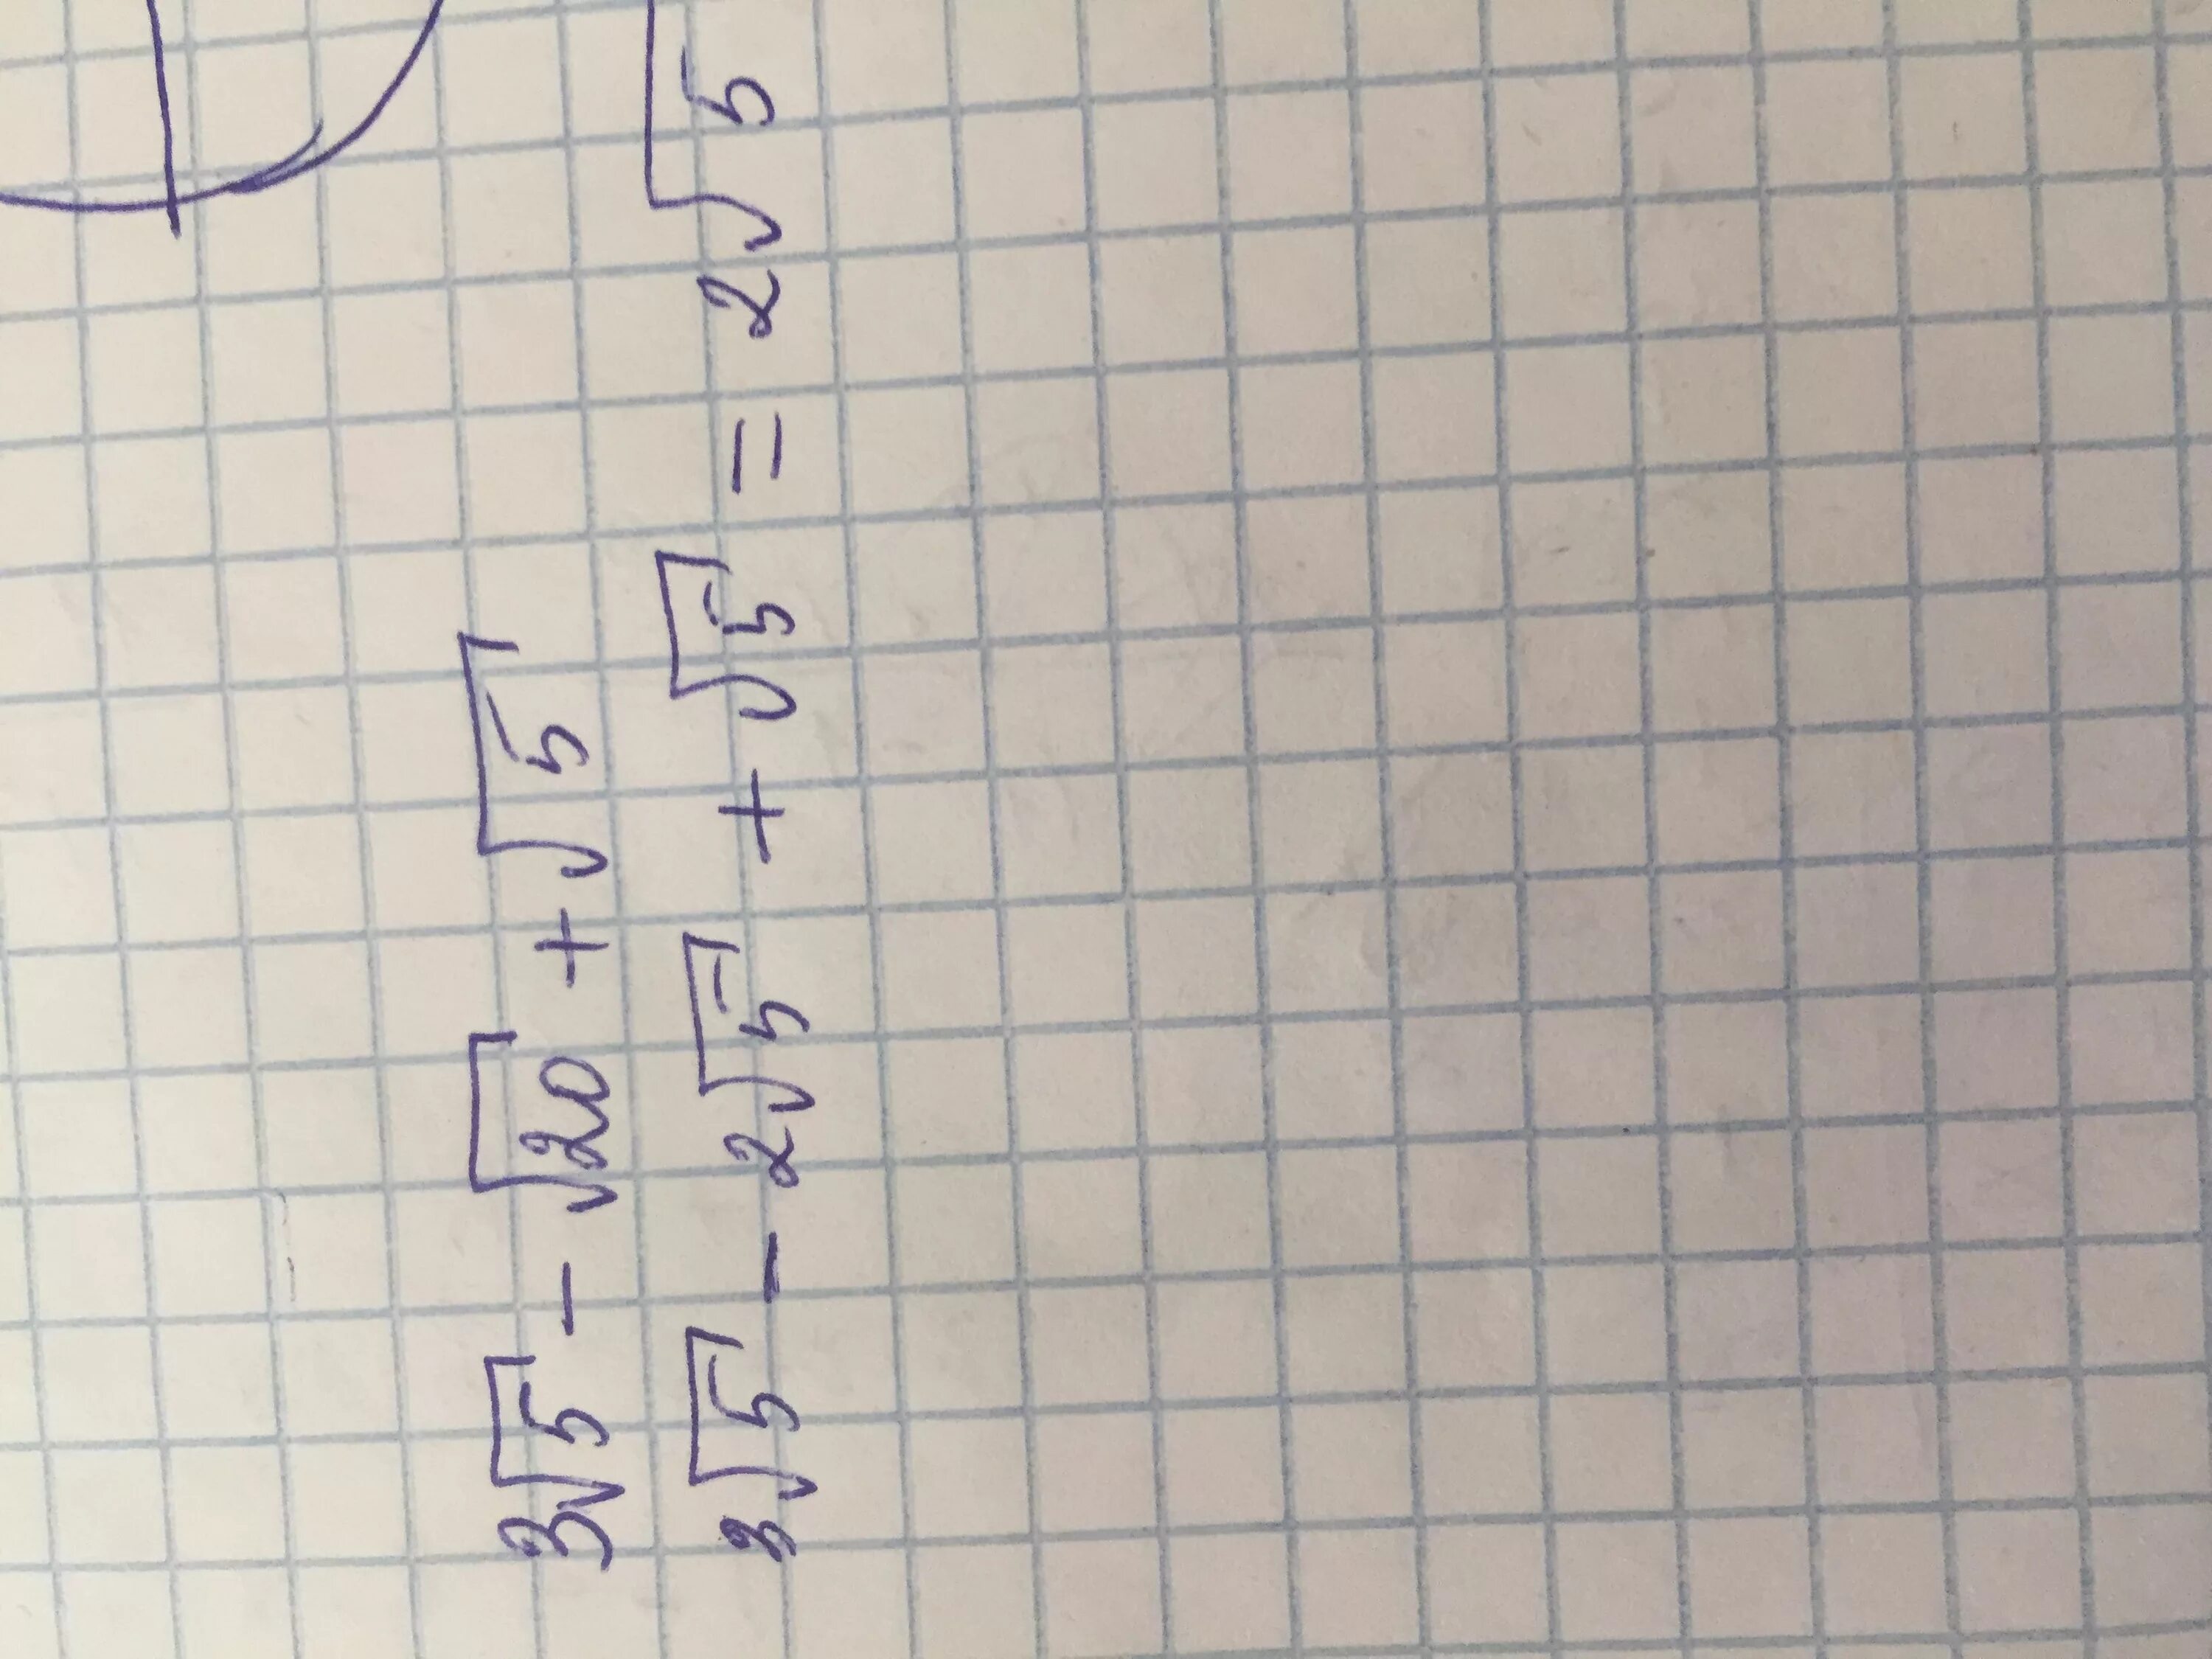 3√5 - √20 + √5
3√5 - 2√5 + √5 = 2√5